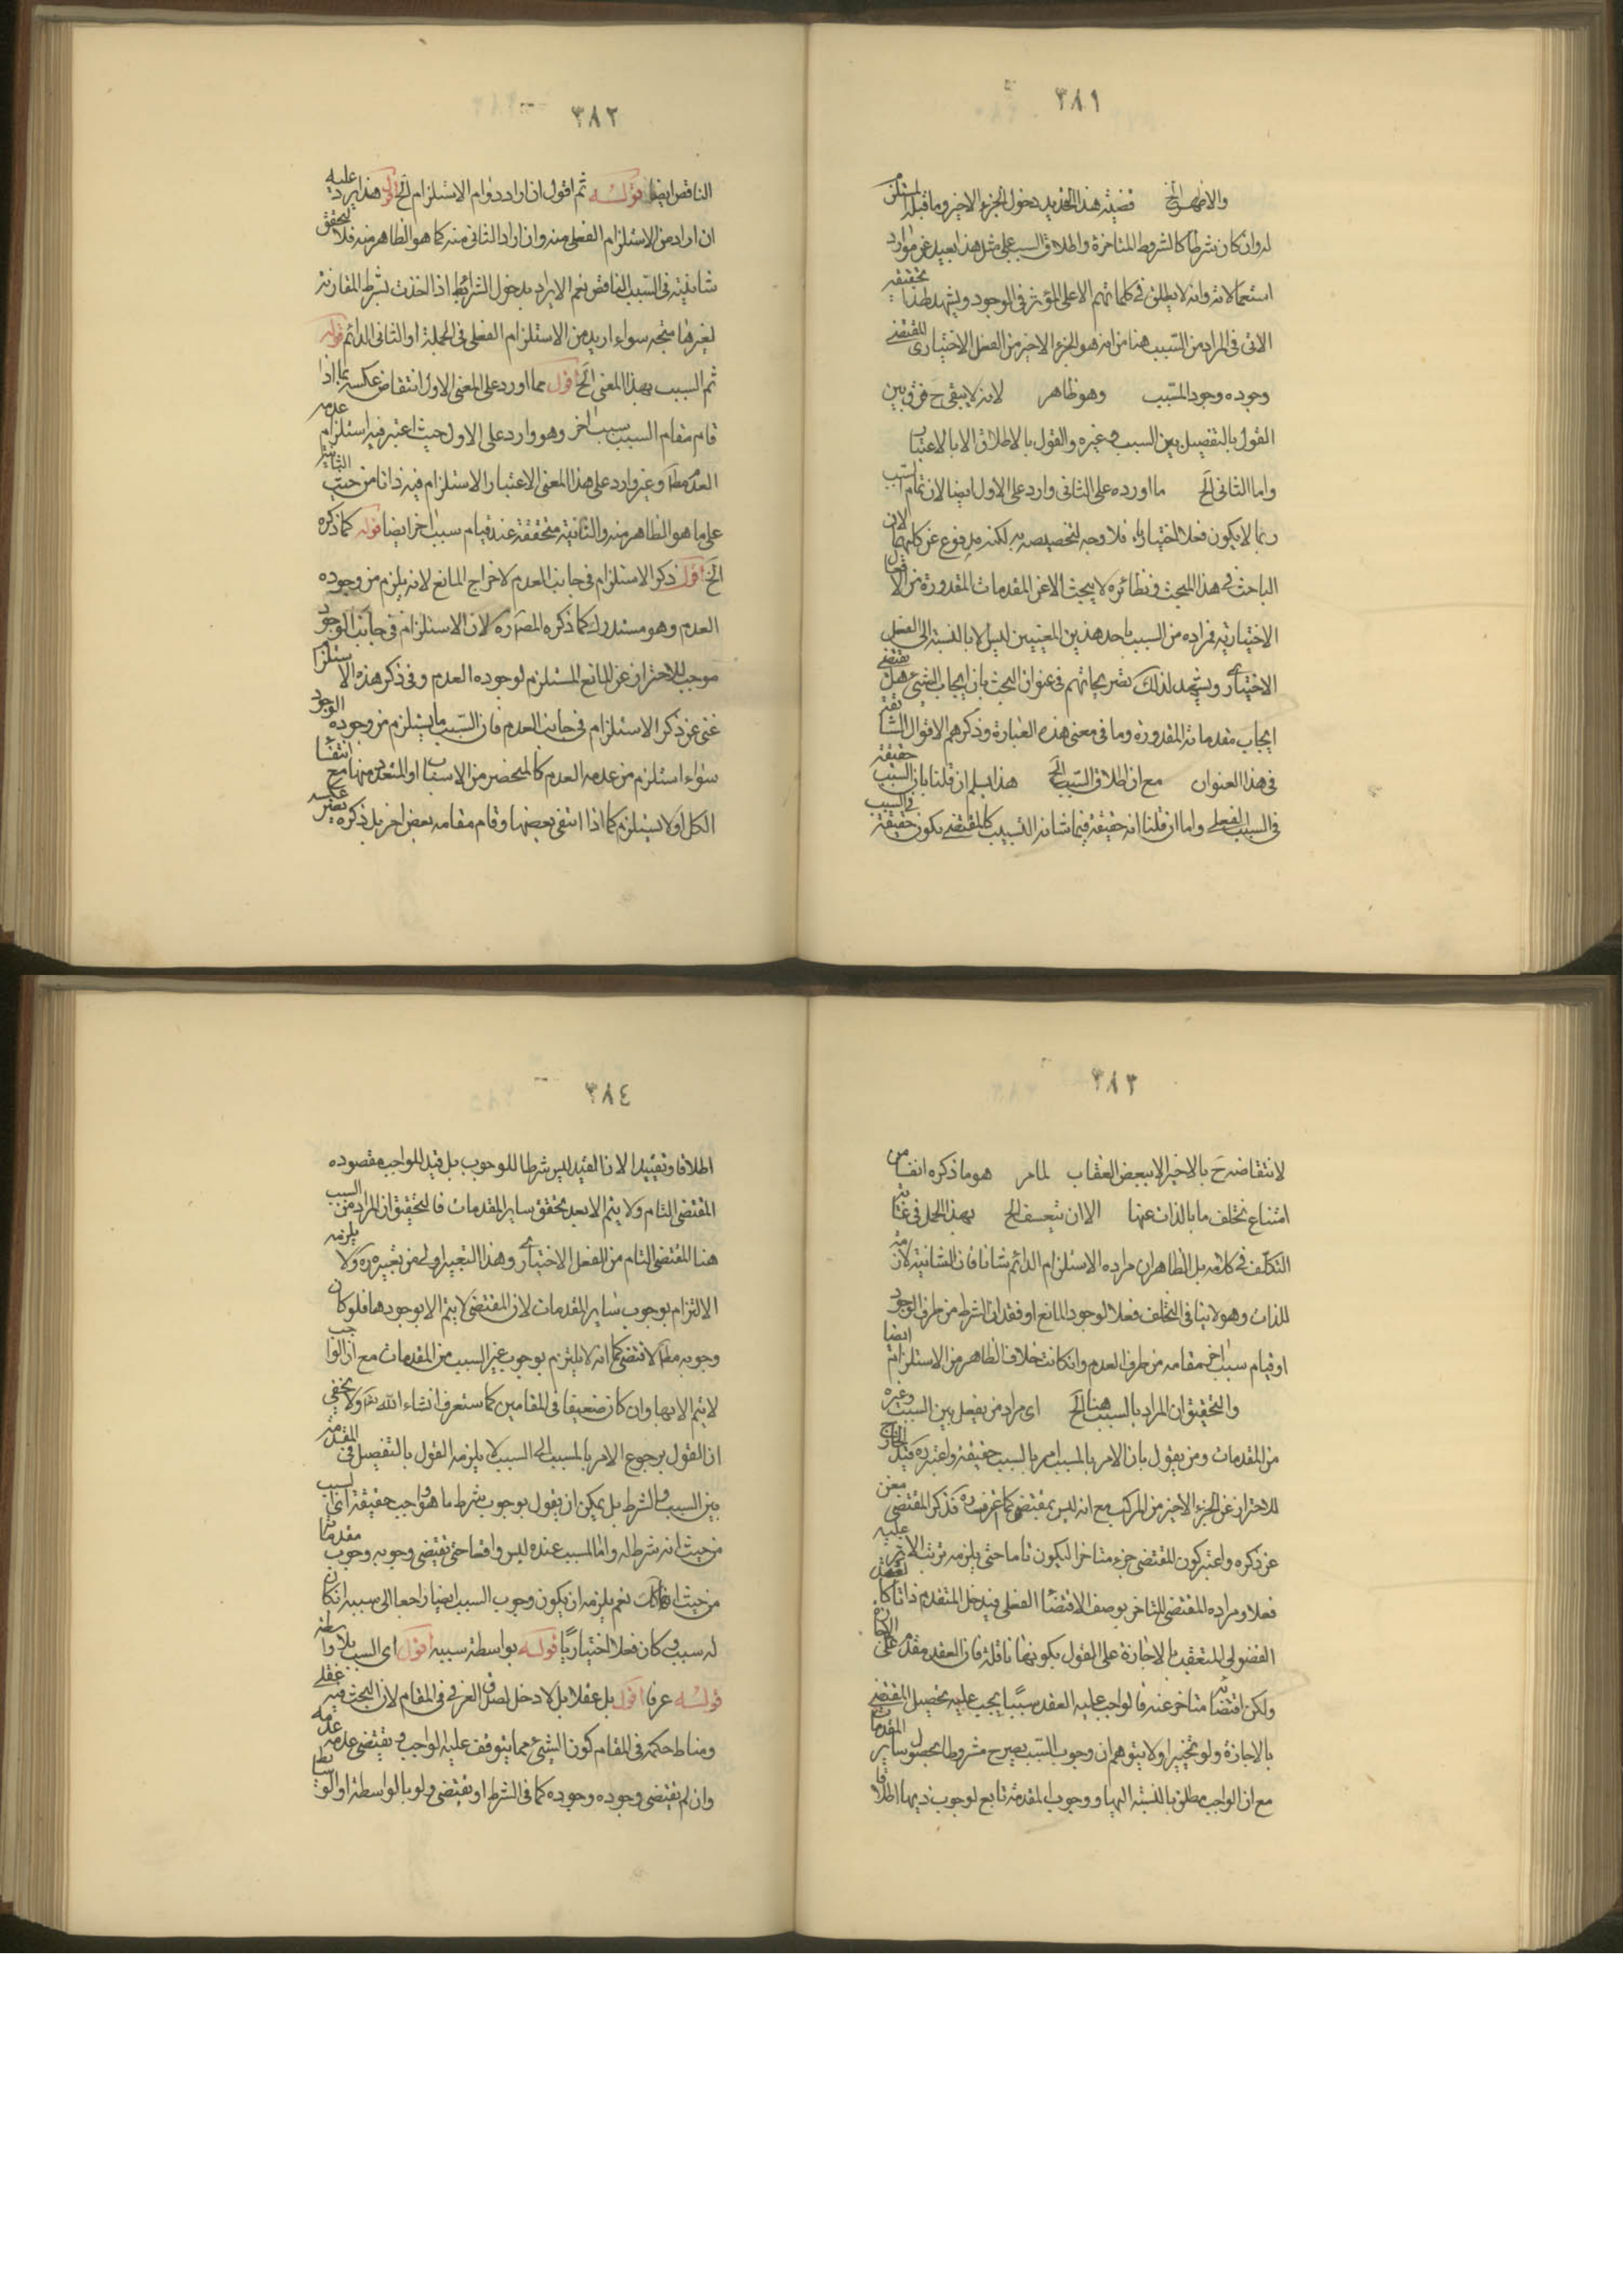 ٣٨١
والاظهر الخ قضية هذا التحديد دخول الجزء الاخير وما قبله المستلزم
له وان كان شرطا كالشروط المتاخرة واطلاق السبب على مثل هذا بعيد عن موارد
استعمالاته وانه لا يطلق في كلماتهم الا على المؤثر في الوجود ويشهد لهذا تحقيقه
الاتي في المراد من السبب هنا من انه هو الجزء الاخير من الفعل الاختياري المقتضي
وجوده وجود المسبب وهو ظاهر لانه لا يبقى ح فرق بين
القول بالتفصيل بين السبب وغيره والقول بالاطلاق الا بالاعتبار
واما الثاني الخ ما اورده على الثاني وارد على الاول ايضا لان تمام السبب
ربما لا يكون فعلا اختياريا فلا وجه لتخصيصه به لكنه مدفوع عن كليهما لان
الباحث في هذا المبحث ونظائره لا يبحث الا عن المقدمات المقدورة من الافعال
الاختيارية فمراده من السبب باحد هذين المعنيين ليس الا بالنسبة الى الفعل
الاختياري ويشهد لذلك تصريحاتهم في عنوان البحث بان ايجاب الشيء هل يقتضي
ايجاب مقدماته المقدورة وما في معنى هذه العبارة وذكرهم الاقوال السابقة
في هذا العنوان مع ان اطلاق السبب الخ هذا يسلم ان قلنا بان السبب حقيقة
في السبب الفعلي واما ان قلنا انه حقيقة فيما شانه التسبيب كالمقتضي يكون حقيقة في السبب
٣٨٢
الناقص ايضا قوله ثم اقول ان اراد دوام الاستلزام الخ اقول هذا يرد عليه
ان اراد من الاستلزام الفعلي منه وان اراد الثاني منه كما هو الظاهر منه فلا لتحقق
شانيته في السبب الناقص نعم الايراد بدخول الشرائط اذا اخذت بشرط المقارنة
لغيرها متجه سواء اريد من الاستلزام الفعلي في الجملة او الثاني الدائم قوله
ثم السبب بهذا المعنى الخ اقول مما اورد على المعنى الاول انتقاض عكسه بما اذا
قام مقام السبب سبب اخر وهو وارد على الاول حيث اعتبر فيه استلزام عدمه
العدم مط وغير وارد على هذا المعنى الاعتبار الاستلزام فيه ذاتا من حيث الشانية
على ما هو الظاهر منه والثانية متحققة عند قيام سبب اخر ايضا قوله كما ذكره
الخ اقول ذكر الاستلزام في جانب العدم لاخراج المانع لانه يلزم من وجوده
العدم وهو مستدرك كما ذكره المص ره لان الاستلزام في جانب الوجود
موجب للاحتراز عن المانع المستلزم لوجوده العدم وفي ذكر هذه الاستلزام
غنى عن ذكر الاستلزام في جانب العدم فان السبب ما يستلزم من وجوده الوجود
سواء استلزم من عدمه العدم كالمنحصر من الاسباب او المتعدد منها مع انتفاء
الكل او لا يستلزم كما اذا انتفى بعضها وقام مقامه بعض اخر بل ذكره يضر عكسه
٣٨٣
لانتقاضه ح بالاخير الا ببعض العقاب لما مر هو ما ذكره انفا من
امتناع تخلف ما بالذات عنها الا ان يتعسف الخ بهذا الحمل في غاية
التكلف في كلامه بل الظاهر ان مراده الاستلزام الدائم شانا فان الشانية لازمة
للذات وهو لا ينافي التخلف فعلا لوجود المانع او فقدان الشرط من طرف الوجود
او قيام سبب اخر مقامه من طرف العدم وان كانت خلاف الظاهر من الاستلزام ايضا
والتحقيق ان المراد بالسبب هنا الخ اي مراد من يفصل بين السبب وغيره
من المقدمات ومن يقول بان الامر بالمسبب امر بالسبب حقيقة واعتبر ره قيد الخارج
للاحتراز عن الجزء الاخير من المركب مع انه ليس بمقتضي كما عرفت ره فذكر المقتضي مغن
عن ذكره واعتبر كون المقتضي جزء متاخرا ليكون تاما حتى يلزمه ترتب الاثر عليه
فعلا ومراده المقتضي المتاخر بوصف الاقتضاء الفعلي فيدخل المتقدم ذاتا كالعقد
الفضولي المتعقب بالاجازة على القول بكونها ناقلة فان العقد مقدم على الاجازة
ولكن اقتضائه متاخر عنه فالواجب عليه العقد سببا يجب عليه تحصيل المقتضي
بالاجازة ولو تخييرا ولا يتوهم ان وجوب السبب يصير ح مشروطا بحصول ساير المقدمات
مع ان الواجب مطلق بالنسبة اليها ووجوب المقدمة تابع لوجوب ذيها اطلاقا
٣٨٤
اطلاقا وتقييدا لان القيد ليس شرطا للوجوب بل قيد للواجب مقصوده
المقتضي التام ولا يتم الا بعد تحقق ساير المقدمات فالتحقيق ان المراد من السبب
هنا المقتضي التام من الفعل الاختياري وهذا التعبير اولى من تعبيره ره ولا يلزمه
الالتزام بوجوب ساير المقدمات لان المقتضي لا يتم الا بوجودها فلو كان
وجوبه مط لاقتضى كما انه لا يلتزم بوجوب غير السبب من المقدمات مع ان الواجب
لا يتم الا بها وان كان ضعيفا في المقامين كما ستعرف انشاء الله تعالى ولا يخفى
ان القول برجوع الامر بالمسبب الى السبب لا يلزمه القول بالتفصيل في المقدمة
بين السبب والشرط بل يمكن ان يقول بوجوب شرط ما هو واجب حقيقة اي السبب
من حيث انه شرط له واما المسبب عنده ليس واقعا حتى يقتضي وجوبه وجوب مقدماته
من حيث انها كانت نعم يلزمه ان يكون وجوب السبب ايضا راجعا الى سببه ان كان
له سبب وكان فعلا اختياريا قوله بواسطة سببه اقول اي السبب بلا واسطة
قوله عرفا اقول بل عقلا بل لا دخل لصدق العرفي في المقام لان البحث فيه عقلي
ومناط حكمه في المقام كون الشيء مما يتوقف عليه الواجب ويقتضي عدمه عدمه
وان لم يقتضي وجوده وجوده كما في الشرط او يقتضي ولو بالواسطة او الوسائط